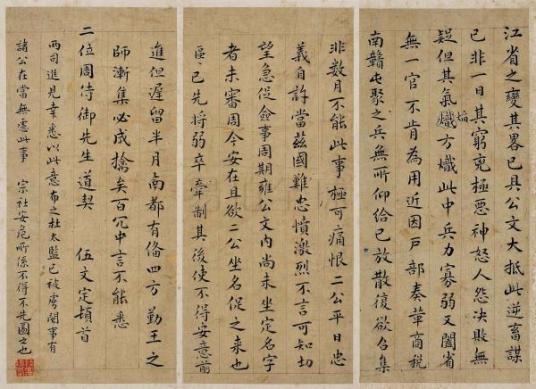 江省之變其畧已具公文大抵此逆畜謀
已非一日其窮兇極惡神怒人怨決敗無
疑但其氣焰方熾此中兵力寡弱又闔省
無一官不肯為用近因戶部奏革商稅
南贛屯聚之兵無所仰給已放散復欲召集
非數月不能此事極可痛恨二公平日忠
義自許當茲國難忠憤激烈不言可知切
望急促僉事周期雍公文內尚未坐定名字
者未審周今安在且欲二公坐名促之來也
區〻已先將弱卒牽制其後使不得安意前
進但遲留半月南都有備四方勤王之
師漸集必成擒矣百冗中言不能悉
二位周侍御先生道契 伍文定頓首
兩司進見幸悉以此意布之杜太監已被虜聞事有
諸公在當無慮此事 宗社安危所係不得不先圖之也